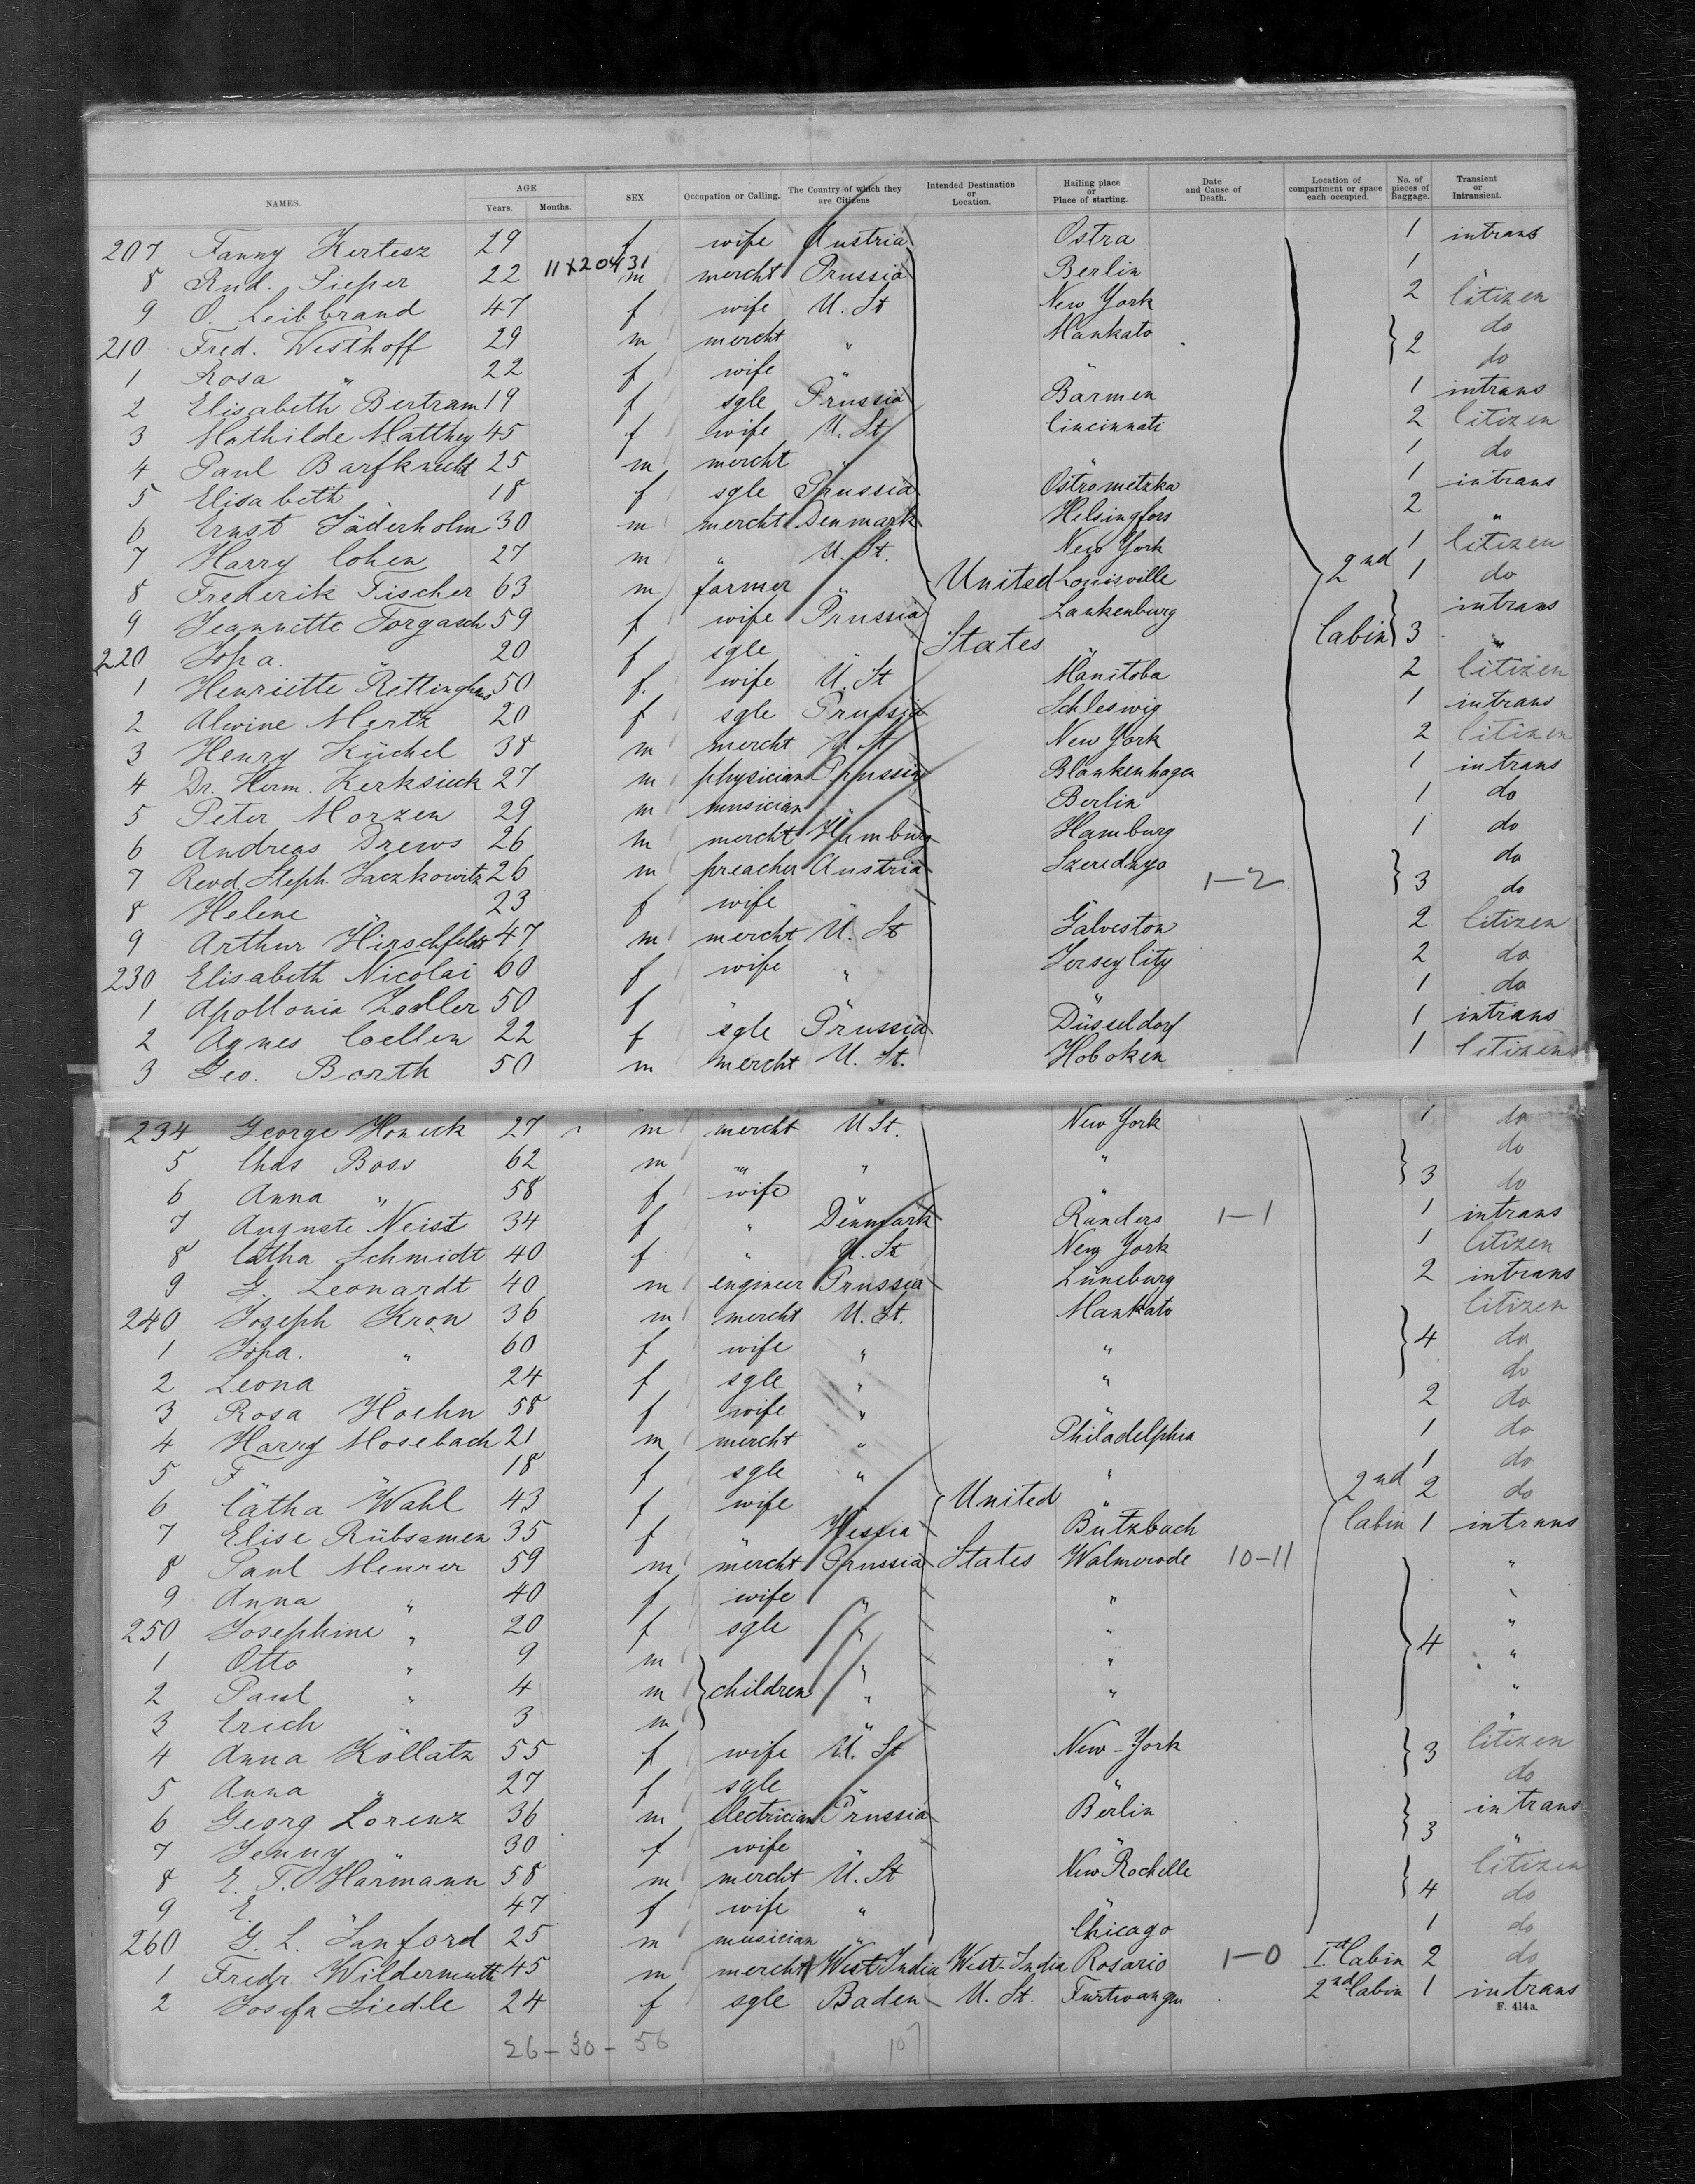 NAMES. AGE Years. Months. SEX Occupation or Calling. The Country of which they are Citizens Intended Destination or Location. Hailing place or Place of starting. Date and Cause of Death. Location of compartment or space each occupied. No. of pieces of Baggage. Transient or Intransient.
207 Fanny Kertesz 29 f wife Austria Ostra 1 intrans
8 Rud. Sieper 22 11X20431 m mercht Prussia Berlin 1
9 O. Leibbrand 47 f wife U. St New York 2 Citizen
210 Fred. Westhoff 29 m mercht " Mankato } 2 do
1 Rosa " 22 f wife " " do
2 Elisabeth Bertram 19 f sgle Prussia Barmen 1 intrans
3 Mathilde Matthey 45 f wife U. St Cincinnati 2 Citizen
4 Paul Barfknecht 25 m mercht " " 1 do
5 Elisabeth " 18 f sgle Prussia Ostrometzka 1 intrans
6 Ernst Söderholm 30 m mercht Denmark Helsingfors 2 "
7 Harry Cohen 27 m " U. St. New York 1 Citizen
8 Frederik Fischer 63 m farmer " United Louisville 2nd 1 do
9 Jeannette Torgasch 59 f wife Prussia Lankenburg intrans
220 Sofia. " 20 f sgle " States " Cabin } 3 "
1 Henriette Rettinghaus 50 f. wife U. St Manitoba 2 Citizen
2 Alwine Mertz 20 f sgle Prussia Schleswig 1 intrans
3 Henry Küchel 38 m mercht U. St New York 2 Citizen
4 Dr. Herm. Kerksieck 27 m physician Prussia Blankenhagen 1 intrans
5 Peter Morzen 29 m musician " Berlin 1 do
6 Andreas Drews 26 m mercht Hamburg Hamburg 1 do
7 Revd. Steph. Jaczkowitz 26 m preacher Austria Szerednyo 1-2 } 3 do
8 Helene " 23 f wife " " do
9 Arthur Hirschfeldt 47 m mercht U. St Galveston 2 Citizen
230 Elisabeth Nicolai 60 f wife " Jersey City 2 do
1 Apollonia Zoeller 50 f " " " 1 do
2 Agnes Coellen 22 f sgle Prussia Düsseldorf 1 intrans
3 Geo. Borth 50 m mercht U. St. Hoboken 1 Citizen
234 George Honeck 27 m mercht U St. New York 1 do
5 Chas Boss 62 m " " " } 3 do
6 Anna " 58 f wife " " do
7 Auguste Neist 34 f " Denmark Randers 1-1 1 intrans
8 Catha Schmidt 40 f " U. St New York 1 Citizen
9 G. Leonardt 40 m engineer Prussia Lüneburg 2 intrans
240 Joseph Kron 36 m mercht U. St. Mankato Citizen
1 Sofia. " 60 f wife " " } 4 do
2 Leona " 24 f sgle " " do
3 Rosa Hoehn 58 f wife " " 2 do
4 Harry Mosebach 21 m mercht " Philadelphia 1 do
5 F " 18 f sgle " " 1 do
6 Catha Wahl 43 f wife " United " 2nd 2 do
7 Elise Rübsamen 35 f " Hessia Butzbach Cabin 1 intrans
8 Paul Meurer 59 m mercht Prussia States Walmerode 10-11 "
9 Anna " 40 f wife " " "
250 Josephine " 20 f sgle " " } 4 "
1 Otto " 9 m " " "
2 Paul " 4 m } children " " "
3 Erich " 3 m " " "
4 Anna Kollatz 55 f wife U. St New-York } 3 Citizen
5 Anna " 27 f sgle " " do
6 Georg Lorenz 36 m electrician Prussia Berlin } 3 intrans
7 Jenny " 30 f wife " " "
8 E. T. Harmann 58 m mercht U. St New Rochelle } 4 Citizen
9 E. " 47 f wife " " do
260 G. L. Sanford 25 m musician " Chicago 1 do
1 Fredr. Wildermuth 45 m mercht West India West-India Rosario 1-0 Ist Cabin 2 do
2 Josefa Siedle 24 f sgle Baden U. St. Furtwangen 2nd Cabin 1 intrans
F. 414a.
26-30-56 107